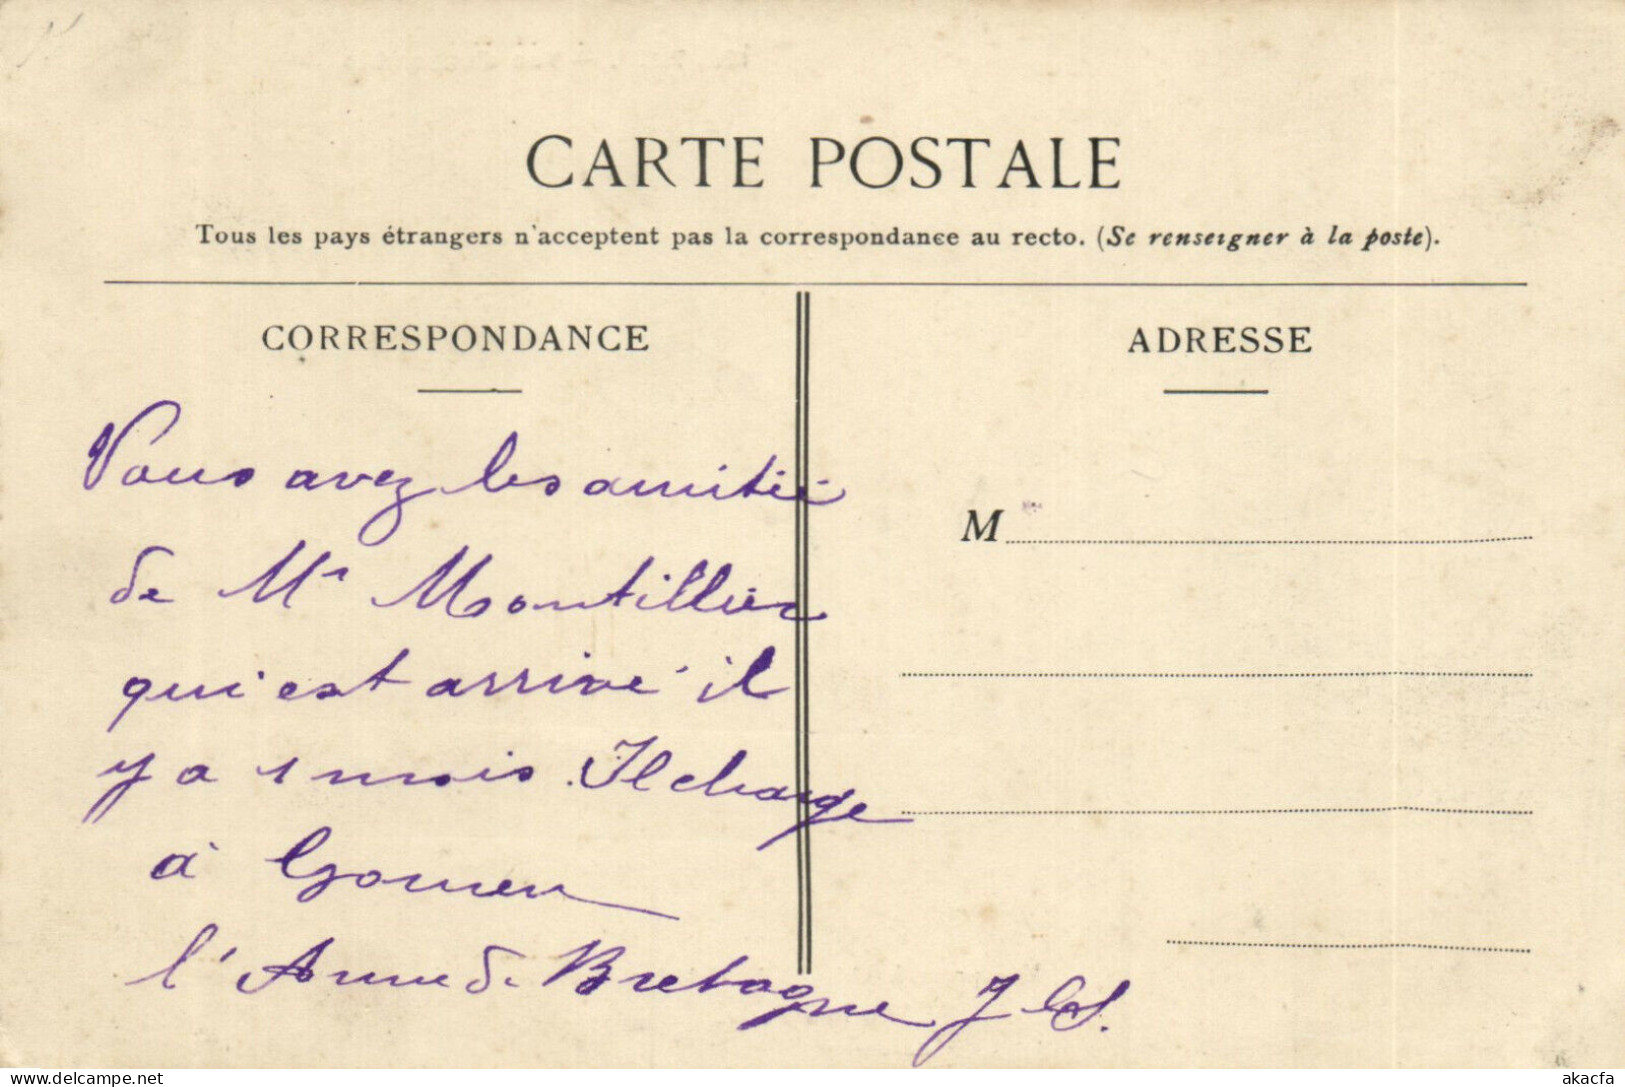 CARTE POSTALE
Tous les pays étrangers n'acceptent pas la correspondance au recto. (Se renseigner à la poste).
CORRESPONDANCE
ADRESSE
Vous avez les amitié
de Mr Montillier
qui est arrivé il
y a 1 mois. Il charge
à Gomen
l'Anne de Bretagne J
M
delcampe.net
akacfa